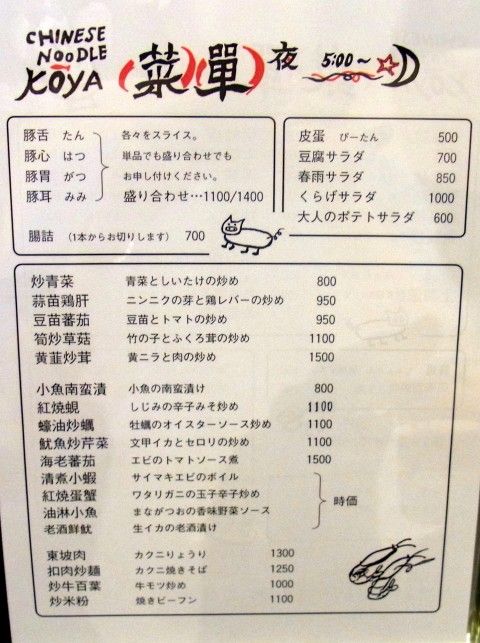 CHINESE
NOODLE
KOYA
(菜)(單) 夜 5:00~
豚舌 たん
豚心 はつ
豚胃 がつ
豚耳 みみ
各々をスライス。
単品でも盛り合わせでも
お申し付けください。
盛り合わせ…1100/1400
腸詰 (1本からお切りします) 700
皮蛋 ぴーたん 500
豆腐サラダ 700
春雨サラダ 850
くらげサラダ 1000
大人のポテトサラダ 600
炒青菜 青菜としいたけの炒め 800
蒜苗鶏肝 ニンニクの芽と鶏レバーの炒め 950
豆苗蕃茄 豆苗とトマトの炒め 950
筍炒草菇 竹の子とふくろ茸の炒め 1100
黄韮炒茸 黄ニラと肉の炒め 1500
小魚南蛮漬 小魚の南蛮漬け 800
紅焼蜆 しじみの辛子みそ炒め 1100
蠔油炒蠣 牡蠣のオイスターソース炒め 1100
魷魚炒芹菜 文甲イカとセロリの炒め 1100
海老蕃茄 エビのトマトソース煮 1500
清煮小蝦 サイマキエビのボイル
紅焼蛋蟹 ワタリガニの玉子辛子炒め
油淋小魚 まながつおの香味野菜ソース
老酒鮮魷 生イカの老酒漬け
時価
東坡肉 カクニりょうり 1300
扣肉炒麺 カクニ焼きそば 1250
炒牛百葉 牛モツ炒め 1000
炒米粉 焼きビーフン 1100